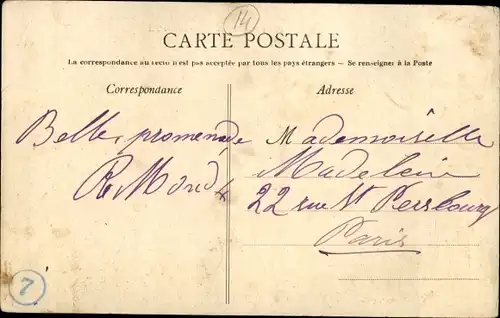 14
CARTE POSTALE
La correspondance au recto n'est pas acceptée par tous les pays étrangers — Se renseigner à la Poste
Correspondance
Belle promenade
Adresse
Mademoiselle
Madelein
22 rue St Perrbourg
Paris
7